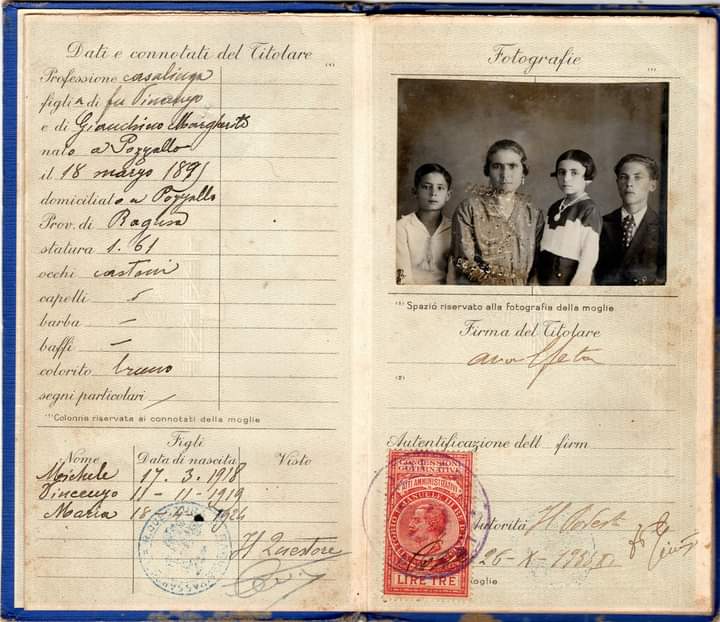 Dati e connotati del Titolare
Professione casalinga
figlia di fu Vincenzo
e di Giunchino Margherita
nato a Pozzallo
il 18 marzo 1891
domiciliato a Pozzallo
Prov. di Ragusa
statura 1.61
occhi castani
capelli
barba –
baffi –
colorito bruno
segni particolari /
(1) Colonna riservata ai connotati della moglie
Figli
Nome Data di nascita Visto
Michele 17.3.1918
Vincenzo 11-11-1919
Maria
Il Questore
Fotografie
(1)
(1) Spazio riservato alla fotografia della moglie
Firma del Titolare
(2)
Autentificazione dell firm
CONCESSIONI
GOVERNATIVE
ATTI AMMINISTRATIVI
VITTORIO EMANUELE III
LIRE TRE
Autorità Il
26-X-
Moglie